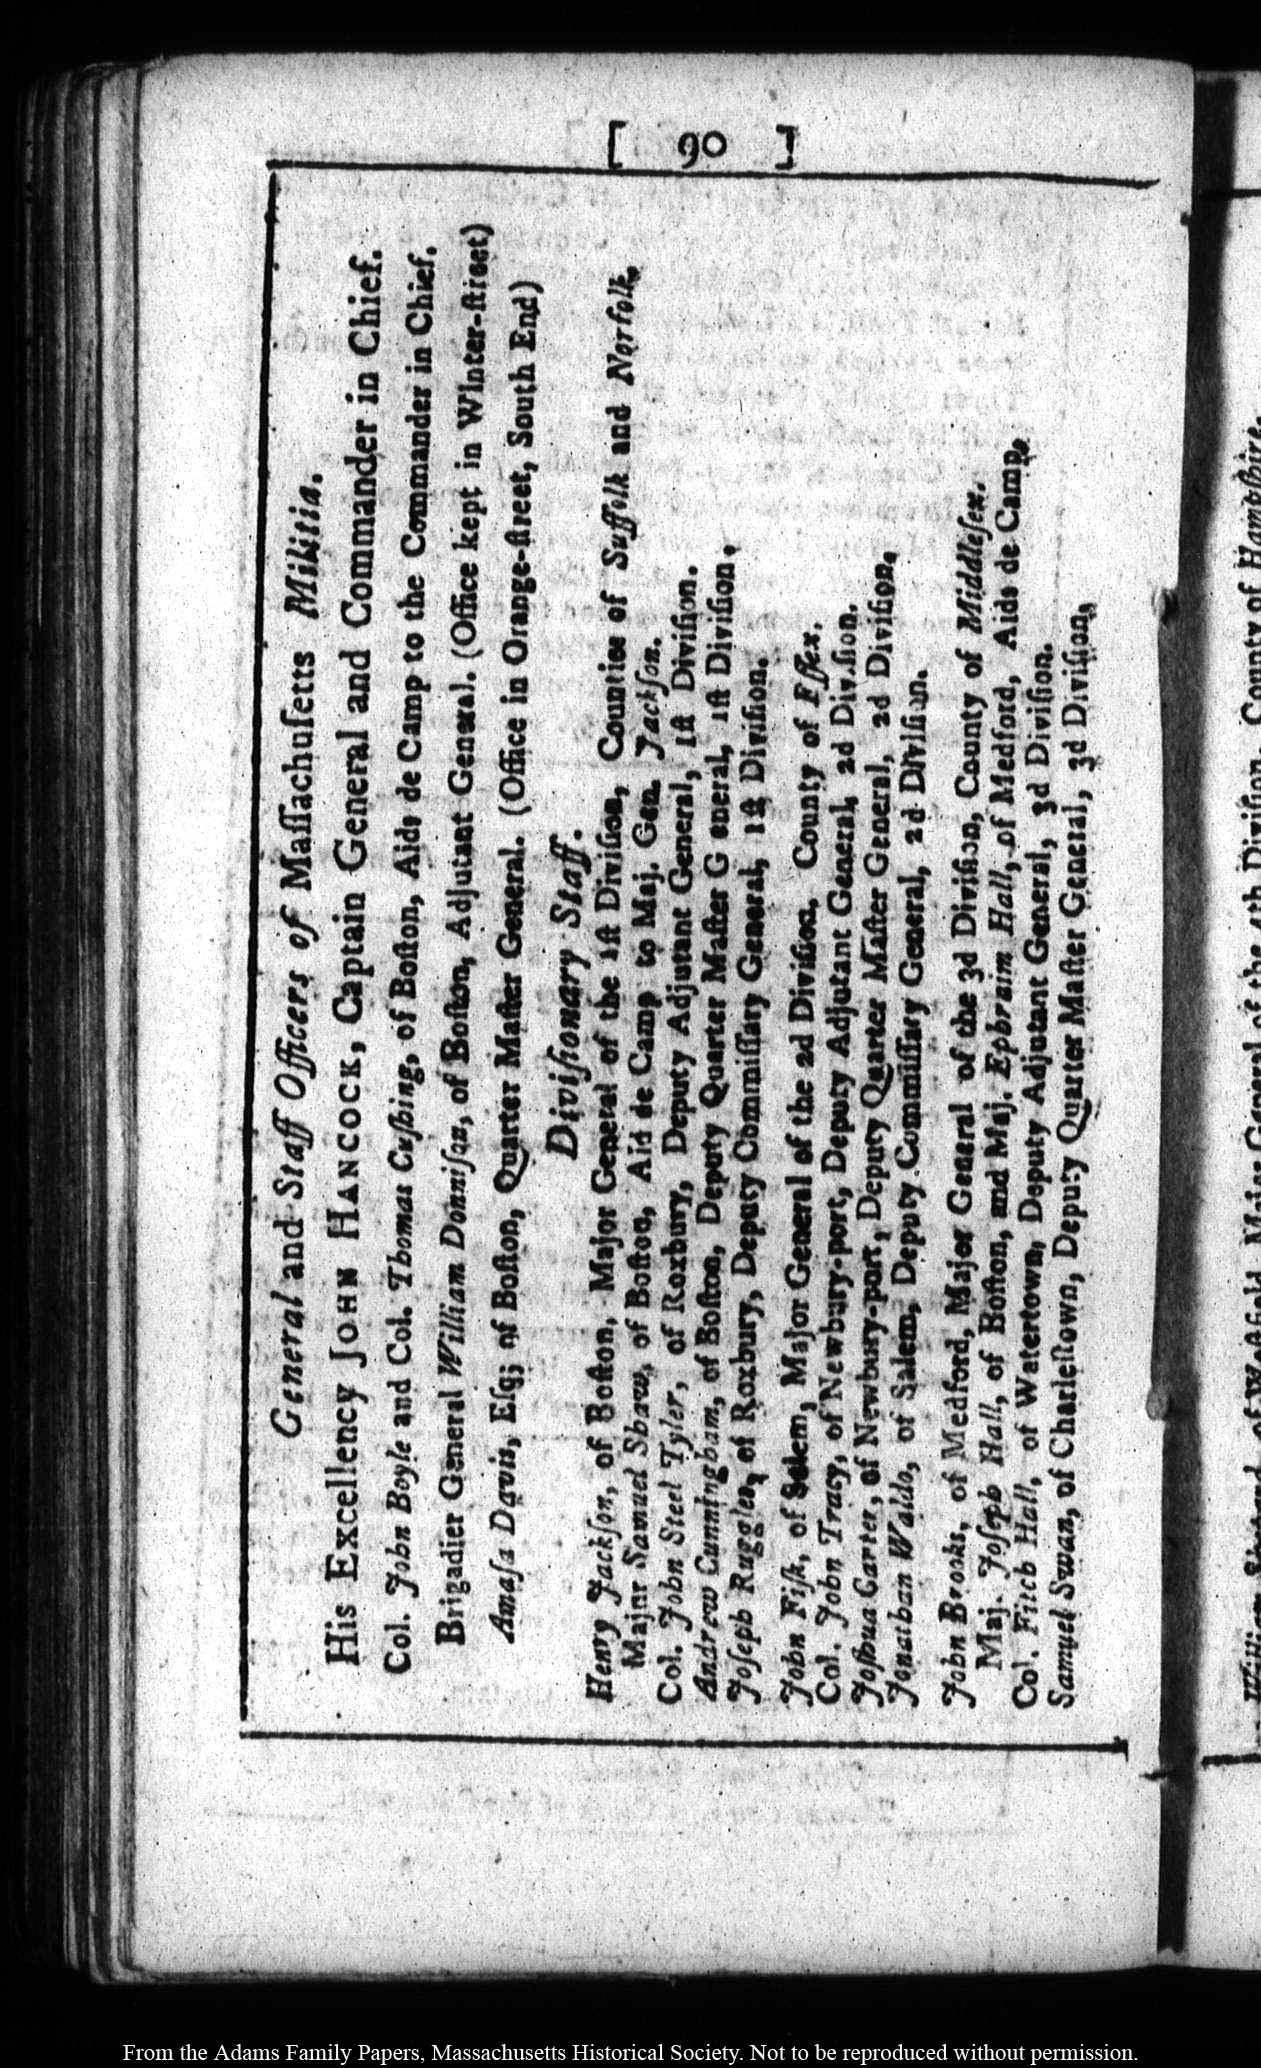 [ 90 ]
General and Staff Officers of Maſſachuſetts Militia.
His Excellency JOHN HANCOCK, Captain General and Commander in Chief.
Col. John Boyle and Col. Thomas Cuſhing, of Boſton, Aids de Camp to the Commander in Chief.
Brigadier General William Donniſon, of Boſton, Adjutant General. (Office kept in Winter-ſtreet)
Amaſa Davis, Eſq; of Boſton, Quarter Maſter General. (Office in Orange-ſtreet, South End)
Diviſionary Staff.
Henry Jackſon, of Boſton, Major General of the 1ſt Diviſion, Counties of Suffolk and Norfolk,
Major Samuel Shaw, of Boſton, Aid de Camp to Maj. Gen. Jackſon.
Col. John Steel Tyler, of Roxbury, Deputy Adjutant General, 1ſt Diviſion.
Andrew Cunningham, of Boſton, Deputy Quarter Maſter G eneral, 1ſt Diviſion,
Joſeph Ruggles, of Roxbury, Deputy Commiſſary General, 1ſt Diviſion.
John Fiſk, of Salem, Major General of the 2d Diviſion, County of Eſſex.
Col. John Tracy, of Newbury-port, Deputy Adjutant General, 2d Diviſion.
Joſhua Carter, of Newbury-port, Deputy Quarter Maſter General, 2d Diviſion,
Jonathan Waldo, of Salem, Deputy Commiſſary General, 2d Diviſion.
John Brooks, of Medford, Major General of the 3d Diviſion, County of Middleſex.
Maj. Joſeph Hall, of Boſton, and Maj. Ephraim Hall, of Medford, Aids de Camp,
Col. Fitch Hall, of Watertown, Deputy Adjutant General, 3d Diviſion.
Samuel Swan, of Charleſtown, Deputy Quarter Maſter General, 3d Diviſion,
of Weſtfield, Major General of the 4th Diviſion, County of Hampſhire.
From the Adams Family Papers, Massachusetts Historical Society. Not to be reproduced without permission.